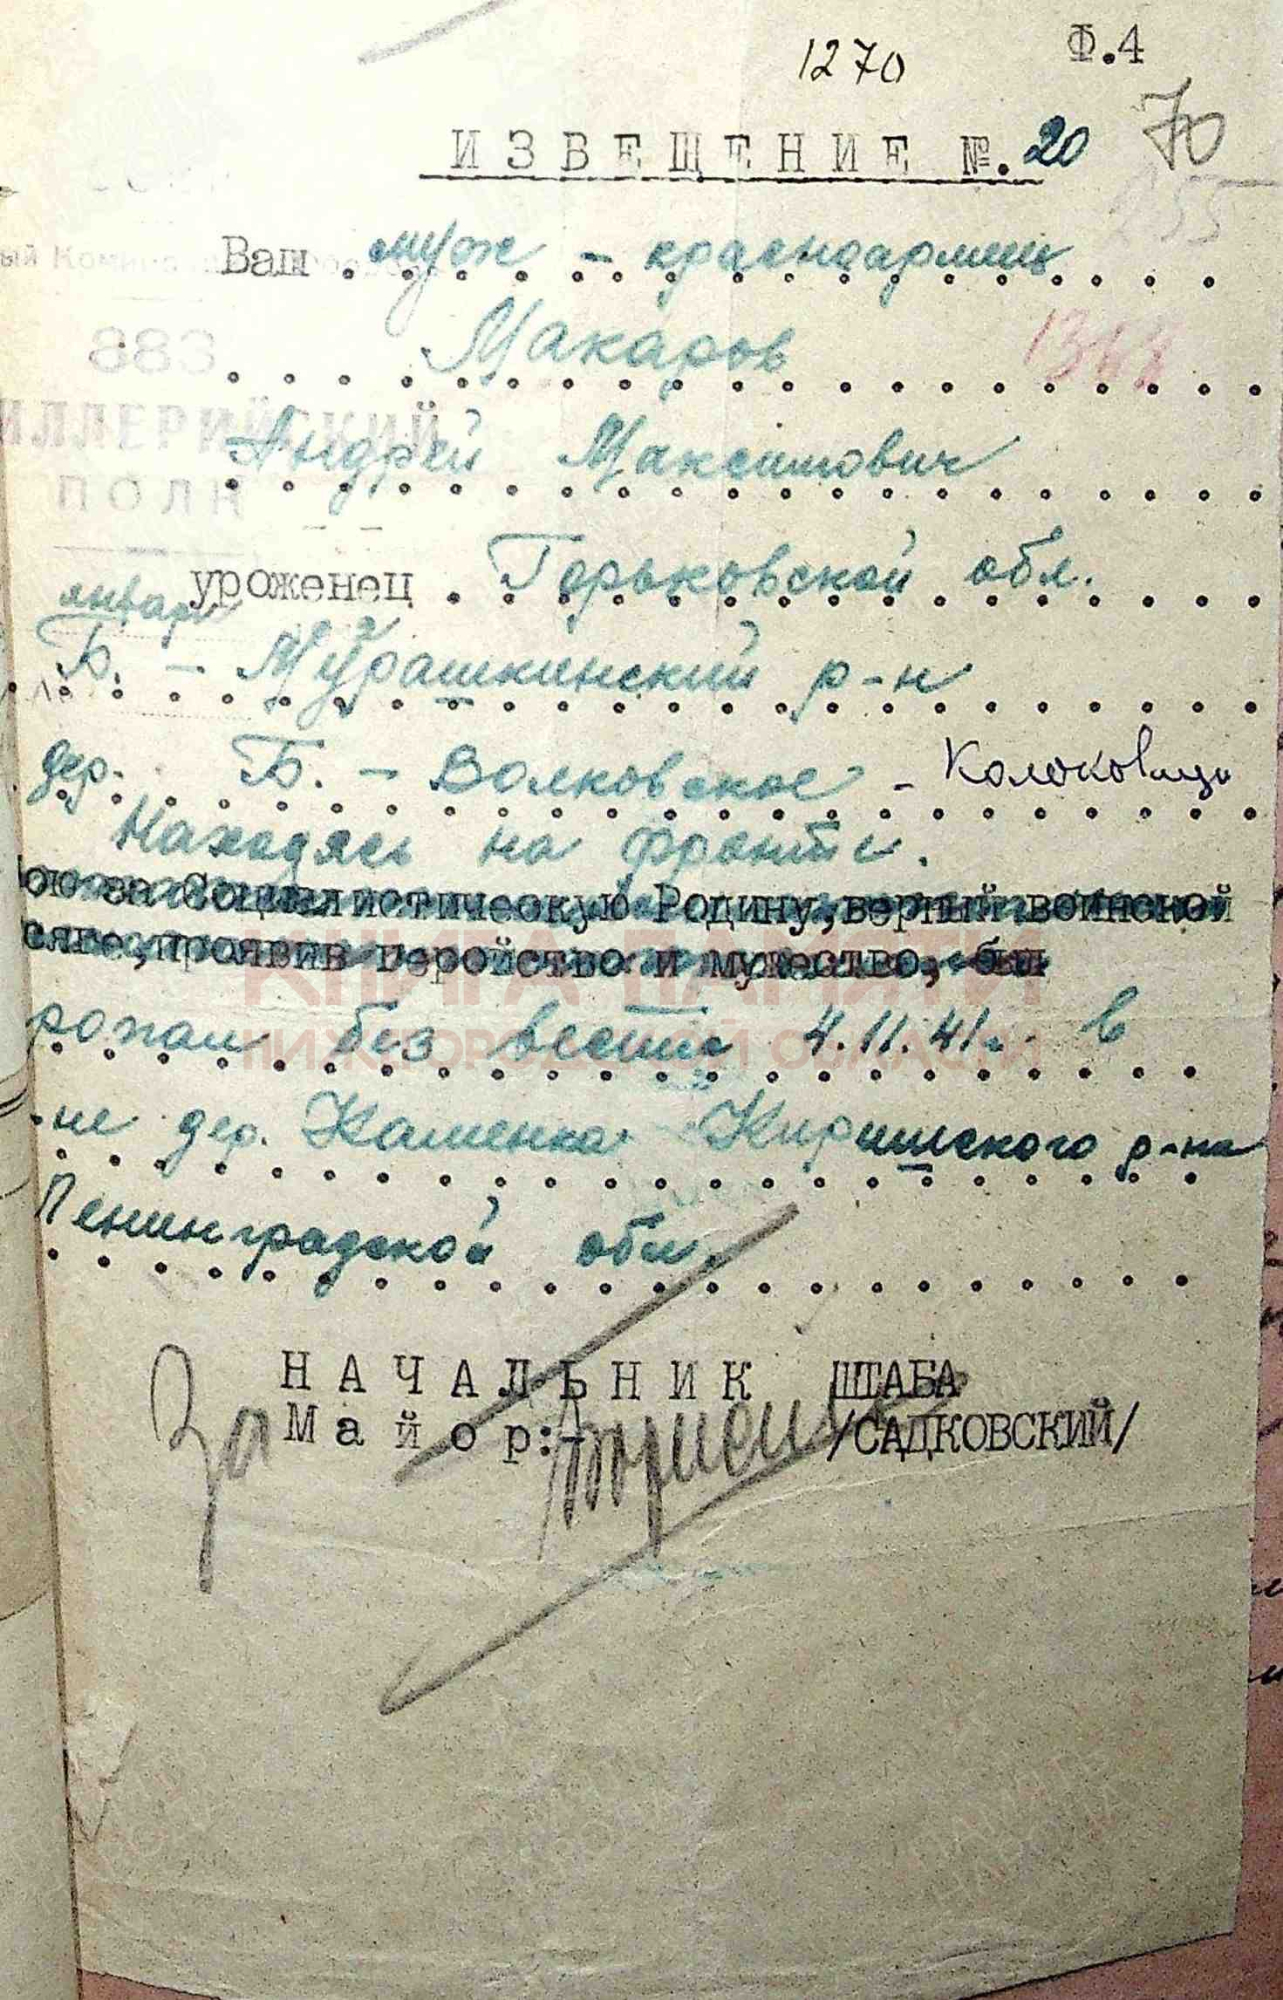 1270 Ф.4
ИЗВЕЩЕНИЕ №. 20 70
255
ый Коми
Ваш муж - красноармеец
Макаров 1344
883
ИЛЛЕРИЙСКИЙ
ПОЛК
Андрей Максимович
уроженец Горьковской обл.
январ
Б. - Мурашкинский р-н
дер. Б. - Волковское - Колоковица
Находясь на фронте.
ою за Социалистическую Родину, верный воинской
сяге, проявив геройство и мужество, был
ропал без вести 4.11.41г. в
-не дер. Каменка Киришского р-на
Ленинградской обл.
НАЧАЛЬНИК ШТАБА
За Майор:- /САДКОВСКИЙ/
КНИГА ПАМЯТИ
НИЖЕГОРОДСКОЙ ОБЛАСТИ